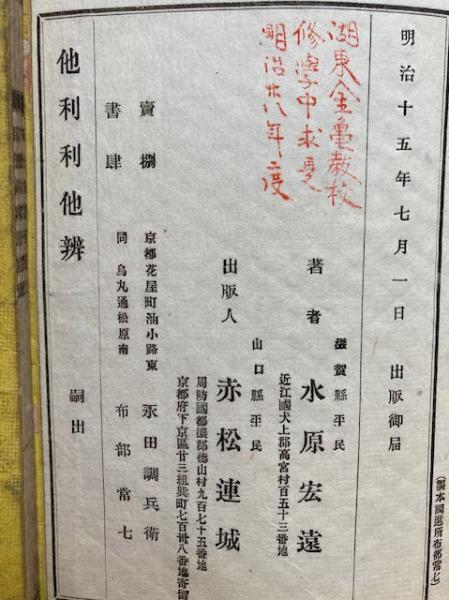 (製本調進所布部常七)
明治十五年七月一日 出版御届
湖東金亀教校
修學中求是
明治廿八年二度
滋賀縣平民
著者 水原宏遠
近江國犬上郡高宮村百五十三番地
山口縣平民
出版人 赤松連城
周防國都濃郡德山村九百七十五番地
京都府下京區廿三組巽町七百卅八番地寄留
賣捌
書肆
京都花屋町油小路東 永田調兵衛
同 烏丸通松原南 布部常七
他利利他辨 嗣出